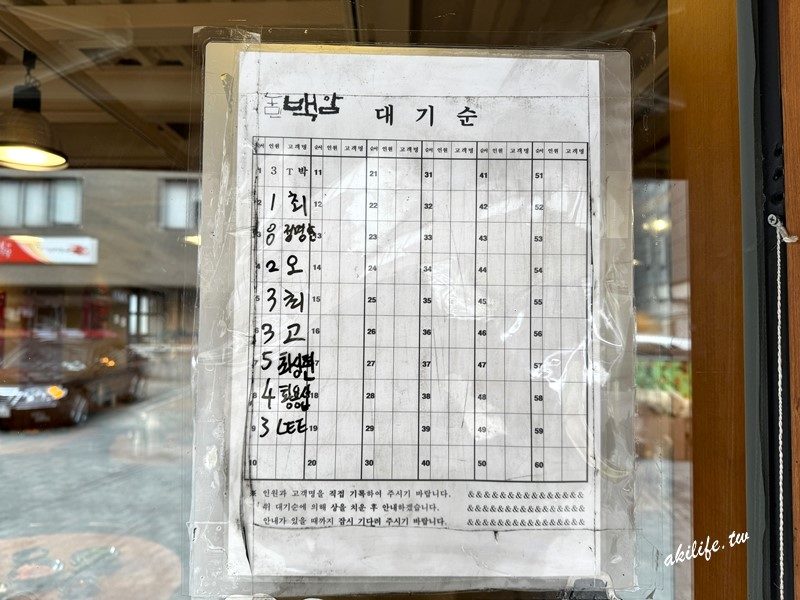 백암 대 기 순
순서 인원 고객명 순서 인원 고객명 순서 인원 고객명 순서 인원 고객명 순서 인원 고객명 순서 인원 고객명
1 3 T 박 11 21 31 41 51
2 1 최 12 22 32 42 52
3 33 43 53 23
4 2 오 14 24 34 44 54
5 3 최 15 25 35 45 55
6 3 고 16 26 36 46 56
7 5 27 37 47 57
8 4 18 28 38 48 58
9 3 LEE 19 29 39 49 59
10 20 30 40 50 60
※ 인원과 고객명을 직접 기록하여 주시기 바랍니다. &&&&&&&&&&&&&&&
위 대기순에 의해 상을 치운 후 안내하겠습니다. &&&&&&&&&&&&&&&
안내가 있을 때까지 잠시 기다려 주시기 바랍니다. &&&&&&&&&&&&&&&
akilife.tw